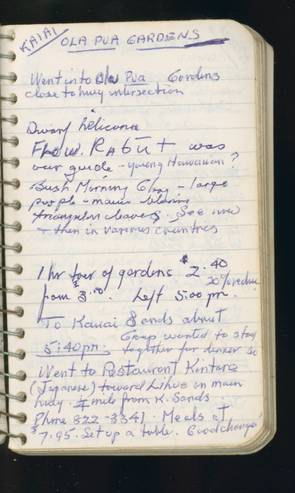 KAIAI
OLA PUA GARDENS
Went into Ola Pua Gardens
close to hwy intersection
Dwarf helicona
Flow. Rabut was
our guide - young Hawaiian?
Bush Morning Glory - large
purple - mauve
triangular leaves - See now
+ then in various countries
1 hr tour of gardens $2.40
20%
from $3.00. Left 5:00 pm.
To Kauai Sands about
5:40 pm. Group wanted to stay
together for dinner so
Went to Restaurant Kintaro
(Japanese) toward Lihue on main
hwy. mile from K. Sands.
Phone 822-3341. Meals at
$7.95. Set up a table. Good change